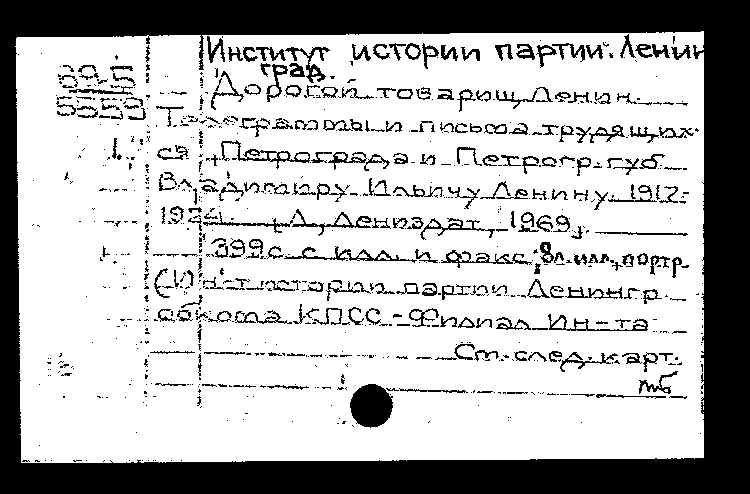 Институт истории партии. Ленин
град.
69-5
5559
Дорогой товарищ Ленин.
Телеграммы и письма трудящих-
ся Петрограда и Петрогр. губ.
Владимиру Ильичу Ленину. 1917-
1924. Л., Лениздат, 1969.
399 с. с илл. и факс; 8 л. илл., портр.
(Ин-т истории партии Ленингр.
обкома КПСС - Филиал Ин-та
См. след. карт.
тб